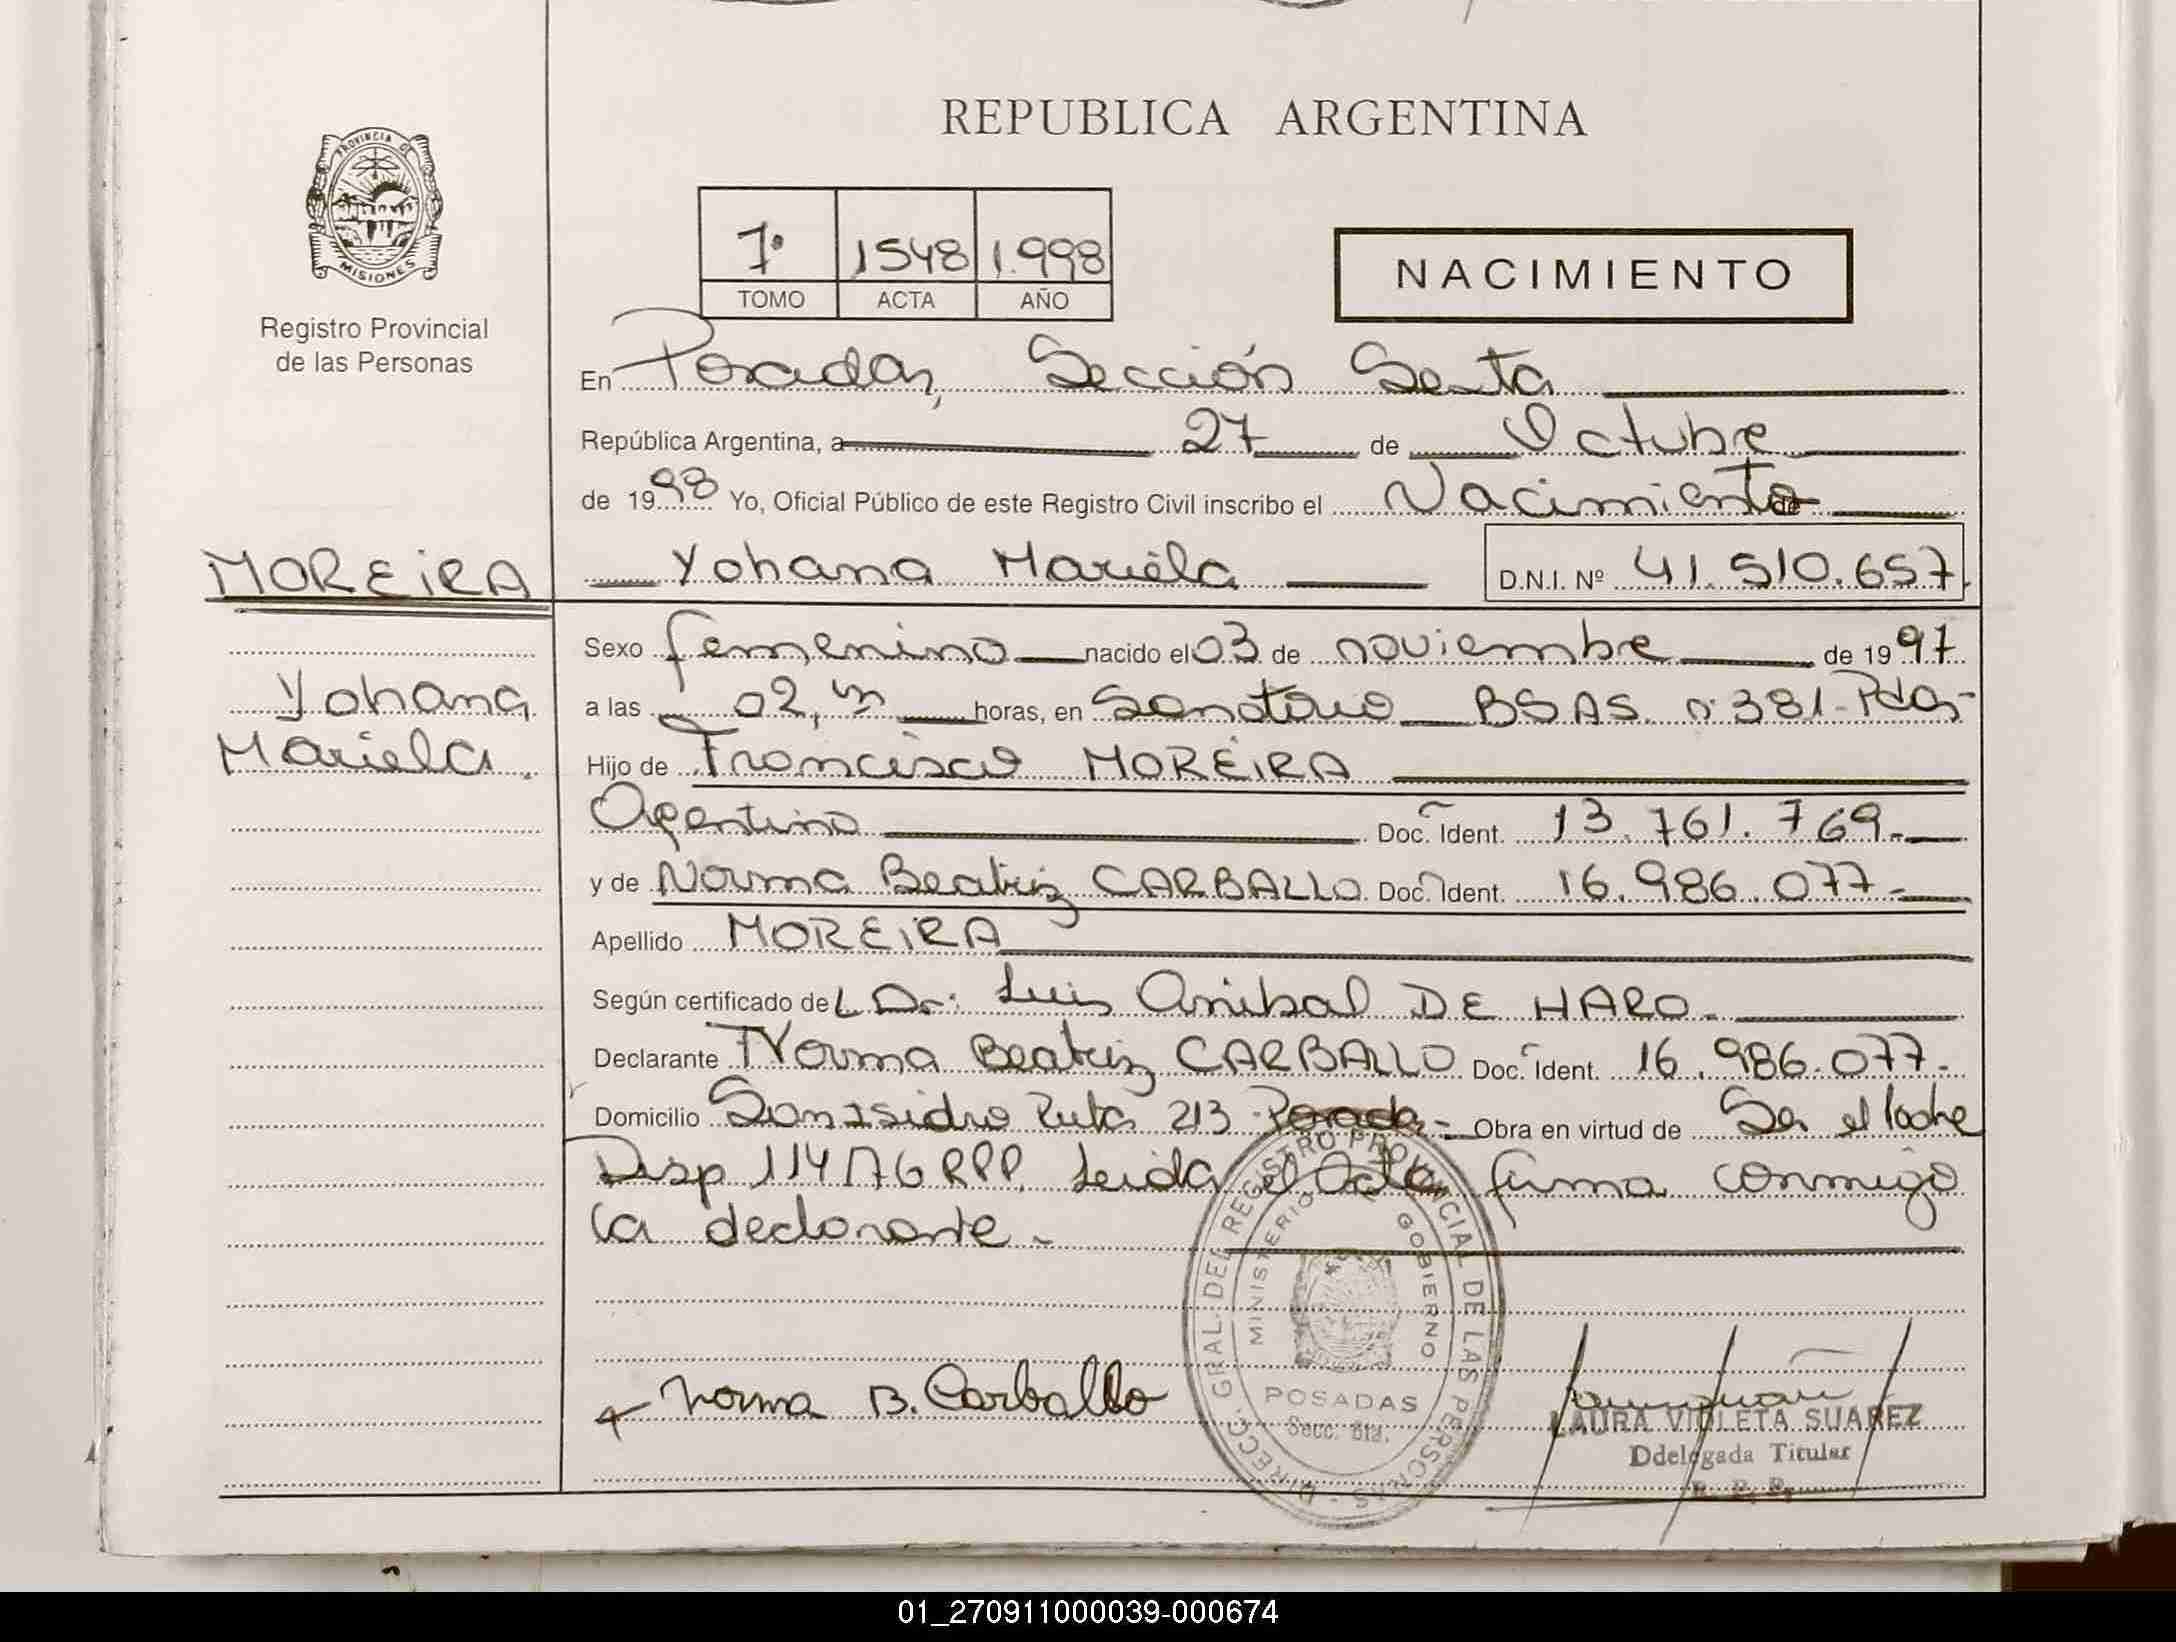 REPUBLICA ARGENTINA
PROVINCIA DE
MISIONES
Registro Provincial
de las Personas
7º 1548 1.998
TOMO ACTA AÑO
NACIMIENTO
En Posadas, Sección Sexta
República Argentina, a 27 de Octubre
de 1998 Yo, Oficial Público de este Registro Civil inscribo el Nacimiento de
MOREIRA
Yohana Mariela D.N.I. Nº 41.510.657
Yohana
Mariela.
Sexo femenino nacido el 03 de noviembre de 1997
a las 02, horas, en Sanatorio BSAS. nº 381 - Pdas-
Hijo de Francisco MOREIRA
Agentino Doc. Ident. 13.761.769.-
y de Norma Beatriz CARBALLO Doc. Ident. 16.986.077.-
Apellido MOREIRA
Según certificado del Dr: Luis Anibal DE HARO.-
Declarante Norma Beatriz CARBALLO Doc. Ident. 16.986.077.-
Domicilio San Isidro Ruta 213 - Posadas - Obra en virtud de Ser el
Disp 114/76 RPP. Leida el Acta firma conmigo
la declarante.-
Norma B. Carballo
DIRECC. GRAL. DEL REGISTRO PROVINCIAL DE LAS PERSONAS -
MINISTERIO GOBIERNO
POSADAS
Secc. 6ta.
LAURA VIOLETA SUAREZ
Ddelegada Titular
R. P. P.
01_270911000039-000674